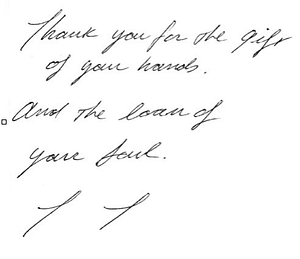 Thank you for the gift
of your hands.
And the loan of
your soul.